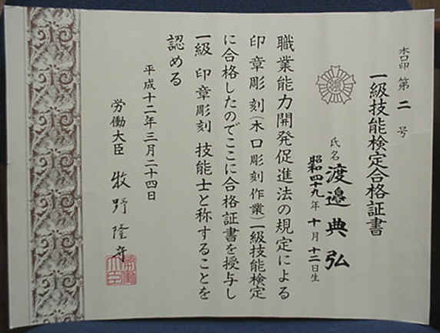 木口印 第二号
一級技能検定合格証書
氏名 渡邉典弘
昭和四十九年十月十二日生
職業能力開発促進法の規定による
印章彫刻(木口彫刻作業)一級技能検定
に合格したのでここに合格証書を授与し
一級 印章彫刻 技能士と称することを
認める
平成十二年三月二十四日
労働大臣 牧野隆守